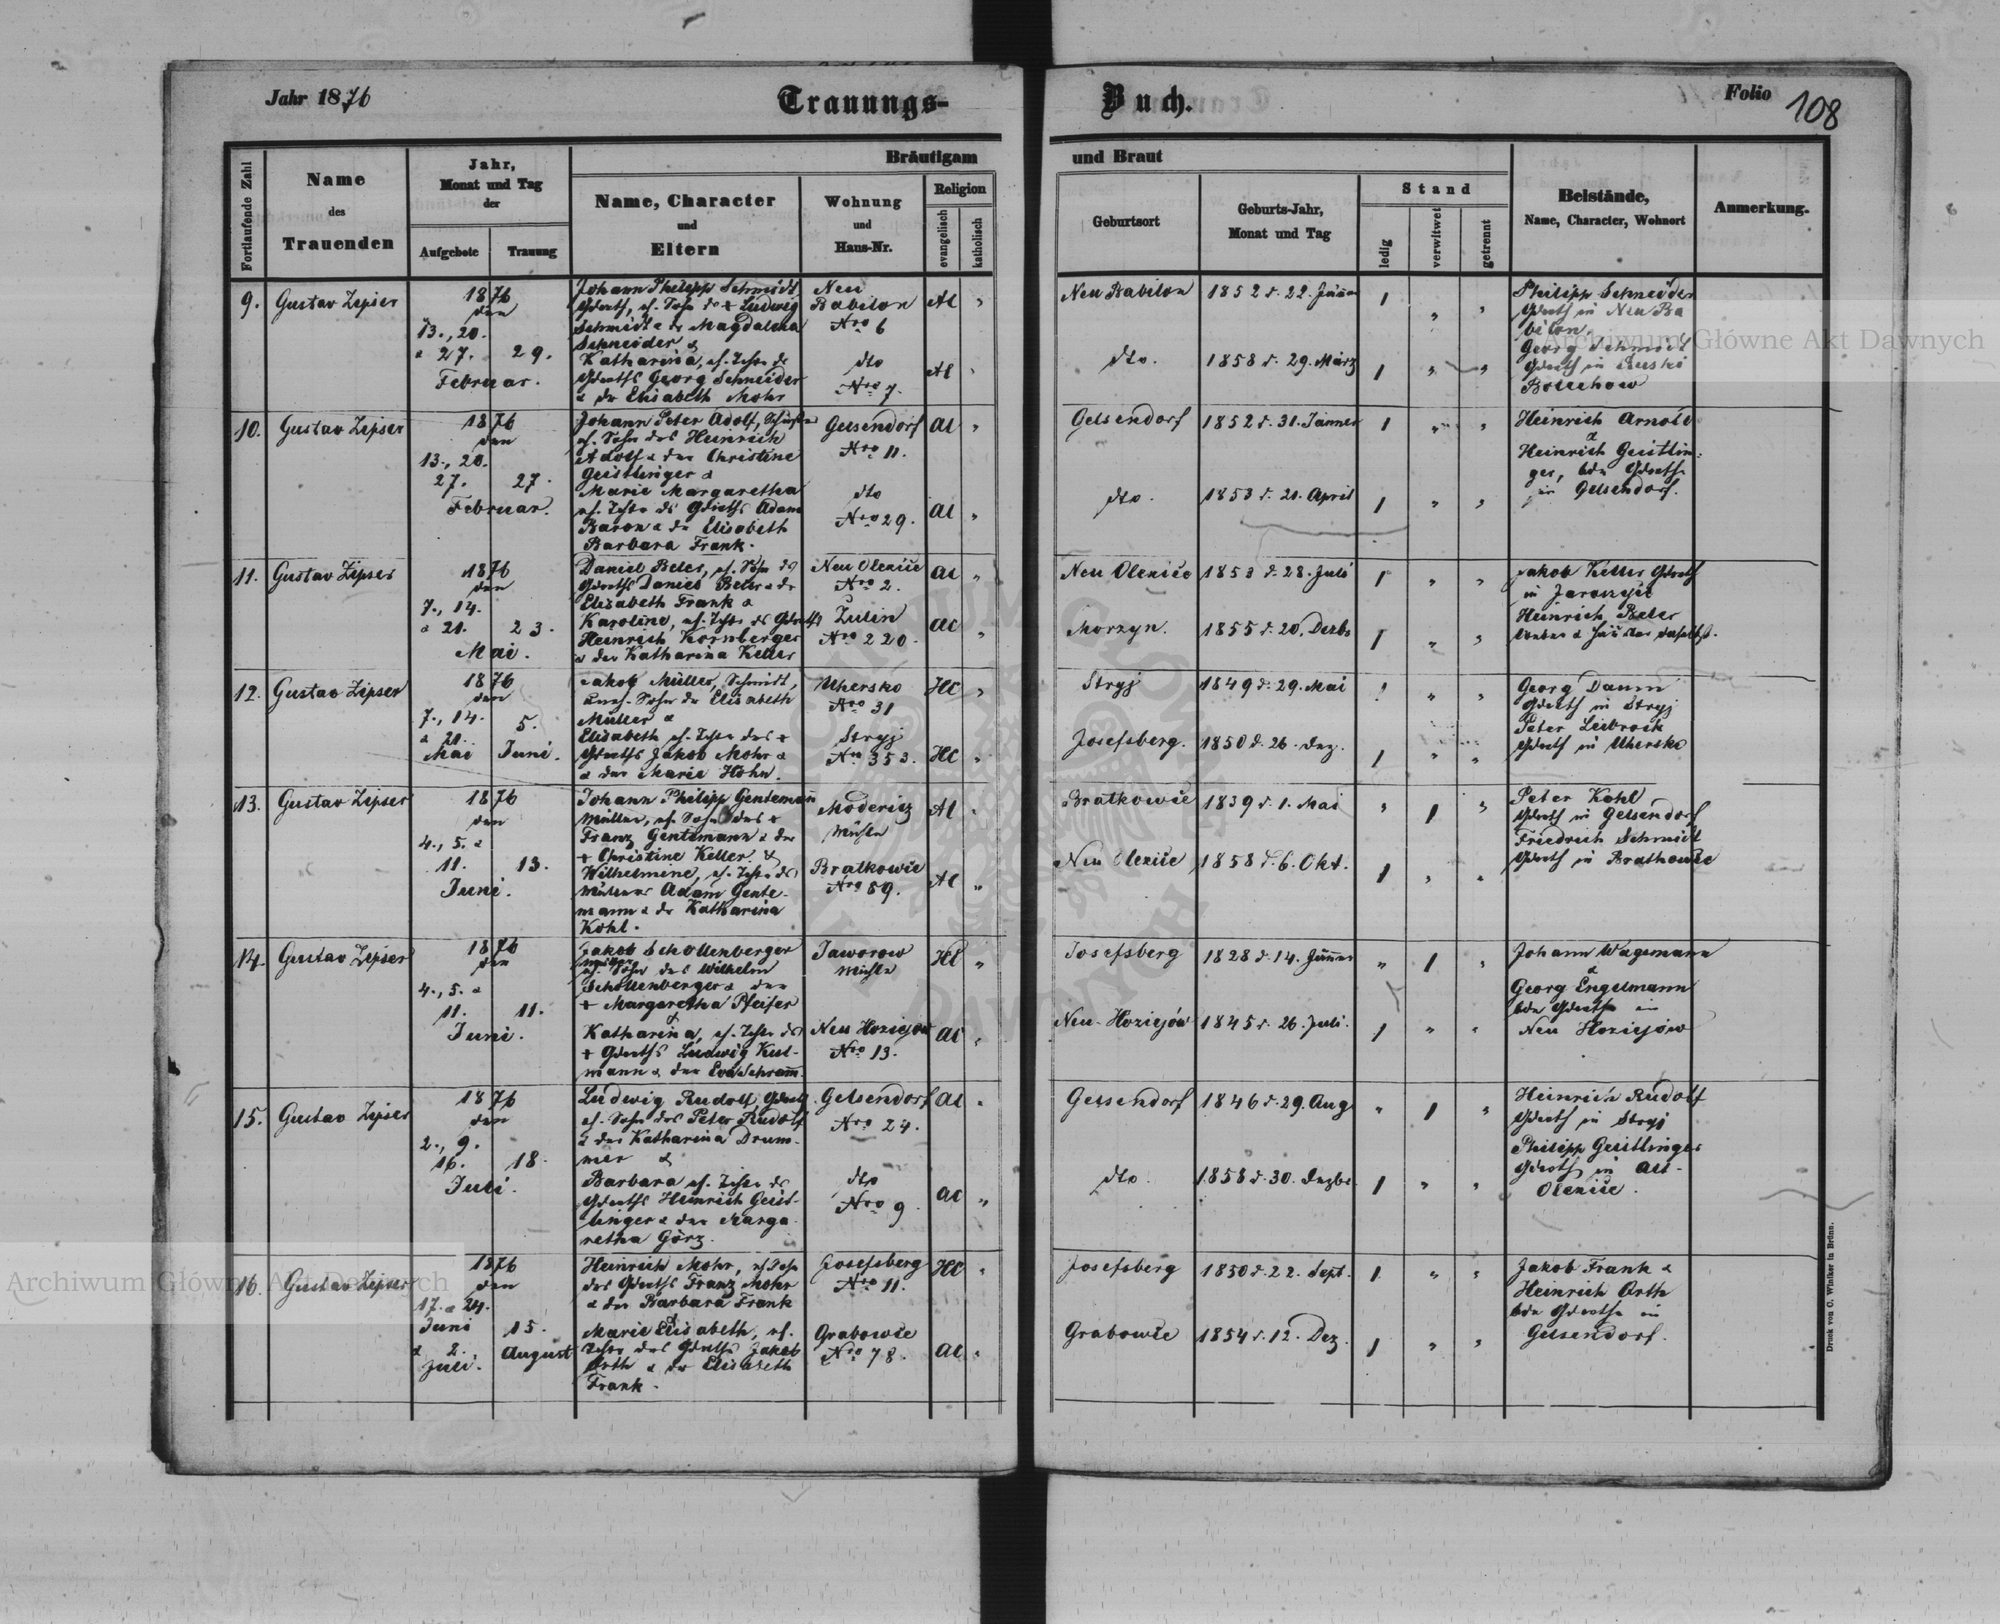 Jahr 1876
Trauungs-
Buch.
Folio 108
Fortlaufende Zahl
Name
des
Trauenden
Jahr,
Monat und Tag
der
Aufgebote
Trauung
Bräutigam
und Braut
Name, Character
und
Eltern
Wohnung
und
Haus-Nr.
Religion
evangelisch
katholisch
Geburtsort
Geburts-Jahr,
Monat und Tag
Stand
ledig
verwitwet
getrennt
Beistände,
Name, Character, Wohnort
Anmerkung.
9. Gustav Zipser
1876
den
13., 20.
& 27. 29.
Februar.
Johann Philipp Schmidt
ehl. Sohn des + Ludwig
Schmidt & der Magdalena
Schneider &
Katharina, ehl. Tochter des
Georg Schneider
& der Elisabeth Mohr
Neu
Babilon
Nro 6
dto
Nro 7.
AC "
AC "
Neu Babilon 1852 d. 22. Jänner 1 " "
dto. 1858 d. 29. März 1 " "
Philipp Schneider
in Neu Ba
bilon.
Georg Schmidt
in
Bolechow
10. Gustav Zipser
1876
den
13., 20.
27. 27.
Februar.
Johann Peter Adolf,
ehl. Sohn des Heinrich
Adolf & der Christine
Geistlinger &
Marie Margaretha
ehl. Tochter des Adam
Baron & der Elisabeth
Barbara Frank.
Gelsendorf
Nro 11.
dto
Nro 29.
AC "
AC "
Gelsendorf 1852 d. 31. Jänner 1 " "
dto. 1853 d. 21. April 1 " "
Heinrich Arnold
&
Heinrich Geistlin-
ger,
in Gelsendorf.
11. Gustav Zipser
1876
den
7., 14.
& 21. 23.
Mai.
Daniel Beler, ehl. Sohn des
Daniel Beler & der
Elisabeth Frank &
Karoline, ehl. Tochter des
Heinrich Kornberger
& der Katharina Keller
Neu Olexice
Nro 2.
Zulin
Nro 220.
AC "
AC "
Neu Olexice 1853 d. 28. Juli 1 " "
Morzyn. 1855 d. 20. Dezbr 1 " "
Jakob Keller
in
Heinrich Beler
12. Gustav Zipser
1876
den
7., 14.
& 21. 5.
Mai Juni.
Jakob Müller, Schmidt,
Sohn der Elisabeth
Müller &
Elisabeth ehl. Tochter des +
Jakob Mohr &
& der Marie Hohn.
Uhersko
Nro 31
Stryj
Nro 353.
HC "
HC "
Stryj 1849 d. 29. Mai 1 " "
Josefsberg. 1850 d. 26. Dez. 1 " "
Georg Daum
in Stryj
Peter Leibrock
in Uhersko
13. Gustav Zipser
1876
den
4., 5. &
11. 13.
Juni.
Johann Philipp Gentemann
Müller, ehl. Sohn des +
Franz Gentemann & der
+ Christine Keller &
Wilhelmine, ehl. Tochter des
Müllers Adam Gente-
mann & der Katharina
Kohl.
Modericz
Mühle
Bratkowice
Nro 89.
AC "
AC "
Bratkowice 1839 d. 1. Mai " 1 "
Neu Olexice 1858 d. 6. Okt. 1 " "
Peter Kohl
in Gelsendorf
Friedrich Schmidt
in Bratkowice
14. Gustav Zipser
1876
den
4., 5. &
11. 11.
Juni.
Jakob Schollenberger
Müller
ehl. Sohn des Wilhelm
Schollenberger & der
+ Margaretha Pfeifer
&
Katharina, ehl. Tochter des
+ Ludwig Kul-
mann & der Eva Schramm.
Jaworow
Mühle
Neu Hoziejow
Nro 13.
HC "
AC "
Josefsberg 1828 d. 14. Jänner " 1 "
Neu-Hoziejów 1845 d. 26. Juli. 1 " "
Johann Wagemann
&
Georg Engelmann
in
Neu Hoziejów
15. Gustav Zipser
1876
den
2., 9.
16. 18.
Juli.
Ludwig Rudolf,
ehl. Sohn des Peter Rudolf
& der Katharina Drum-
mer &
Barbara ehl. Tochter des
Heinrich Geist-
linger & der Marga-
retha Görz.
Gelsendorf
Nro 24.
dto
Nro 9.
AC "
AC "
Gelsendorf 1846 d. 29. Aug " 1 "
dto. 1858 d. 30. Dezbr. 1 " "
Heinrich Rudolf
in Stryj
Philipp Geistlinger
in Alt-
Olexice.
16. Gustav Zipser
1876
den
17. & 24.
Juni 15.
& 2. August
Juli.
Heinrich Mohr, ehl. Sohn
des Franz Mohr
& der Barbara Frank
&
Marie Elisabeth, ehl.
Tochter des Jakob
Orth & der Elisabeth
Frank.
Josefsberg
Nro 11.
Grabowce
Nro 78.
HC "
AC "
Josefsberg 1850 d. 22. Sept. 1 " "
Grabowce 1854 d. 12. Dez. 1 " "
Jakob Frank &
Heinrich Orth
in
Gelsendorf.
Druck von C. Winiker in Brünn.
Archiwum Główne Akt Dawnych
Archiwum Główne Akt Dawnych
ARCHIWUM GŁÓWNE AKT DAWNYCH